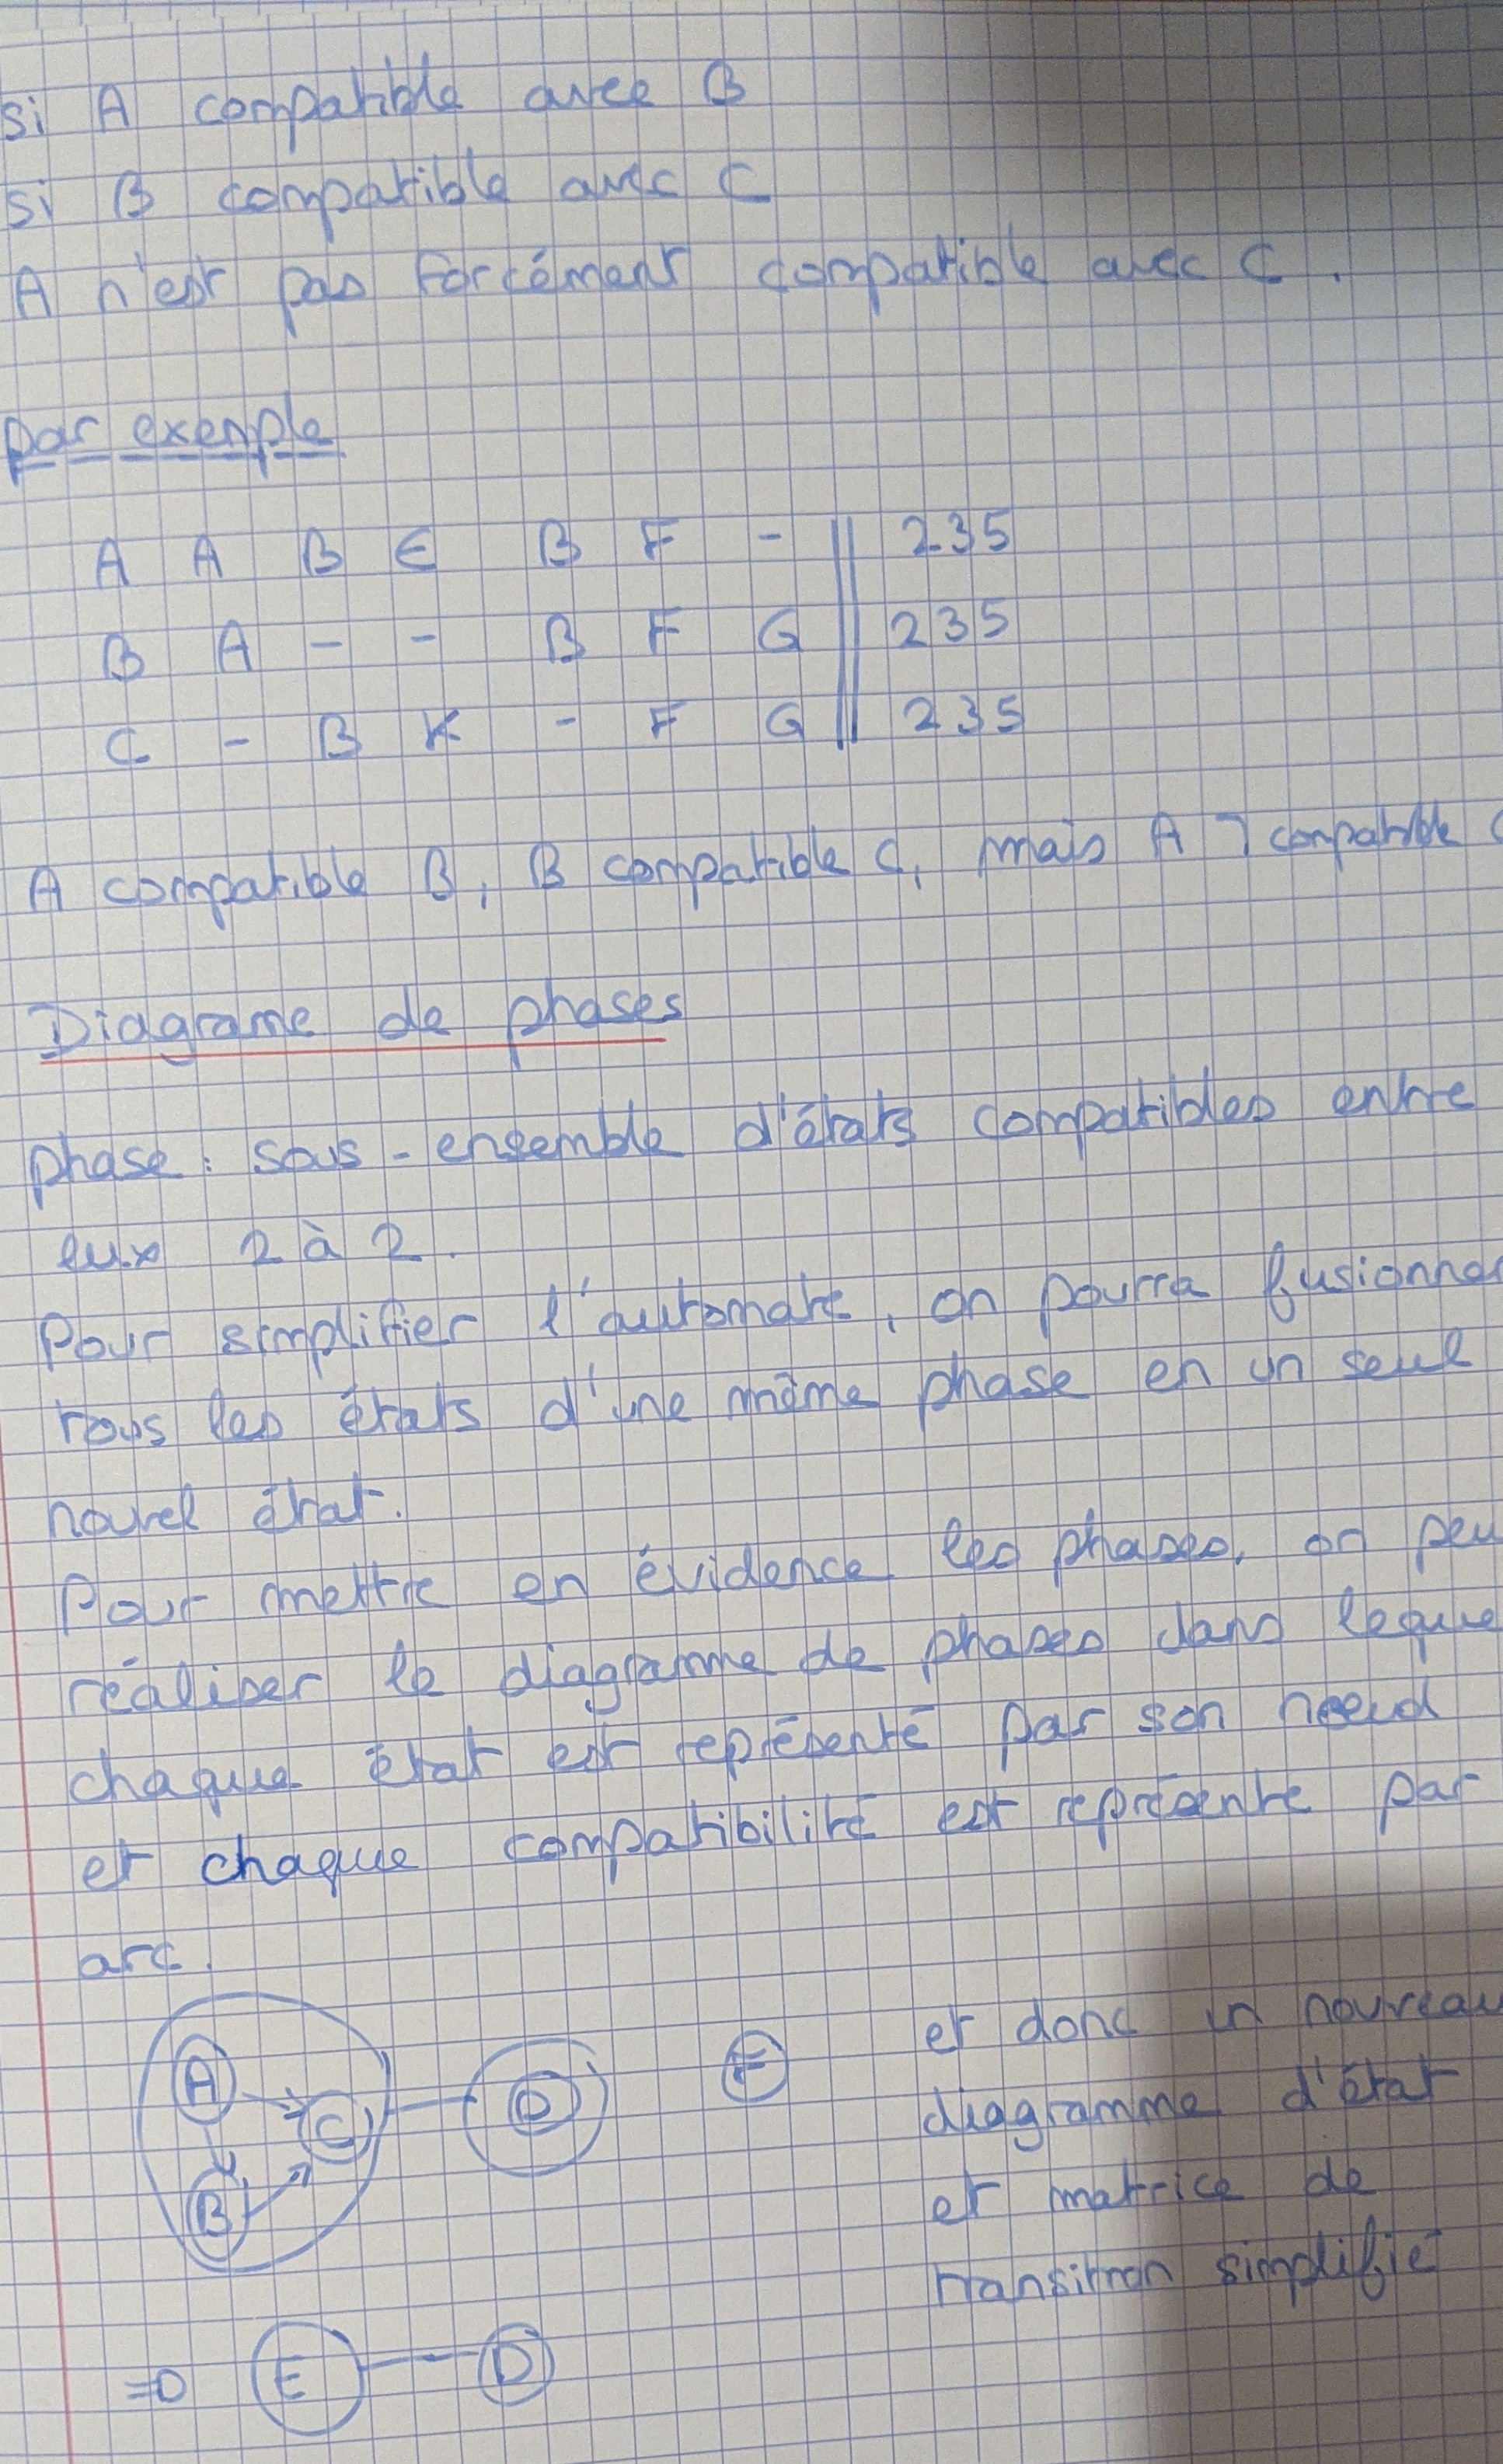 si A compatible avec B
si B compatible avec C
A n'est pas forcément compatible avec C.
par exemple
A A B E B F - || 235
B A - - B F G || 235
C - B K - F G || 235
A compatible B, B compatible C, mais A ⅂ compatible C
Diagrame de phases
phase : sous-ensemble d'états compatibles entre
eux 2 à 2.
Pour simplifier l'automate, on pourra fusionner
tous les états d'une même phase en un seul
nouvel état.
Pour mettre en évidence les phases, on peu
réaliser le diagramme de phases dans leque
chaque état est représenté par son noeud
et chaque compatibilité est représenté par
arc.
A C D F
B
et donc un nouveau
diagramme d'état
et matrice de
transition simplifié
=D E D